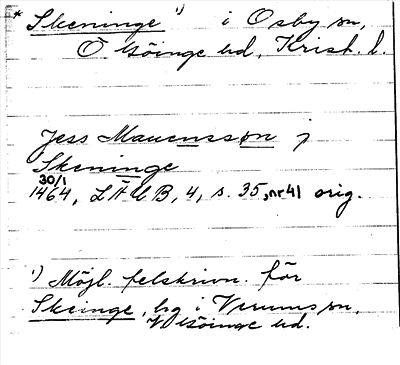 * Skeninge ¹) i Osby sn,
Ö Göinge hd, Krist. l.
Jess Mauensson j
Skeninge
30/1
1464, LÄUB, 4, s. 35, nr 41 orig.
¹) Möjl. felskrivn. för
Skeinge, by i Verums sn,
V Göinge hd.